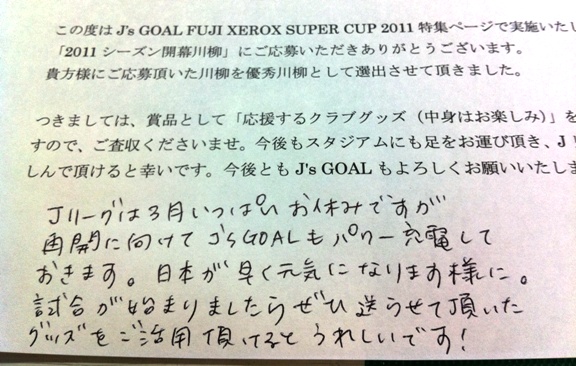 この度は J's GOAL FUJI XEROX SUPER CUP 2011 特集ページで実施いたし
「2011 シーズン開幕川柳」にご応募いただきありがとうございます。
貴方様にご応募頂いた川柳を優秀川柳として選出させて頂きました。
つきましては、賞品として「応援するクラブグッズ（中身はお楽しみ）」を
すので、ご査収くださいませ。今後もスタジアムにも足をお運び頂き、J
しんで頂けると幸いです。今後とも J's GOAL もよろしくお願いいたしま
Jリーグは3月いっぱい お休みですが
再開に向けて J's GOALも パワー充電して
おきます。日本が早く元気になります様に。
試合が始まりましたらぜひ 送らせて頂いた
グッズをご活用 頂けると うれしいです!